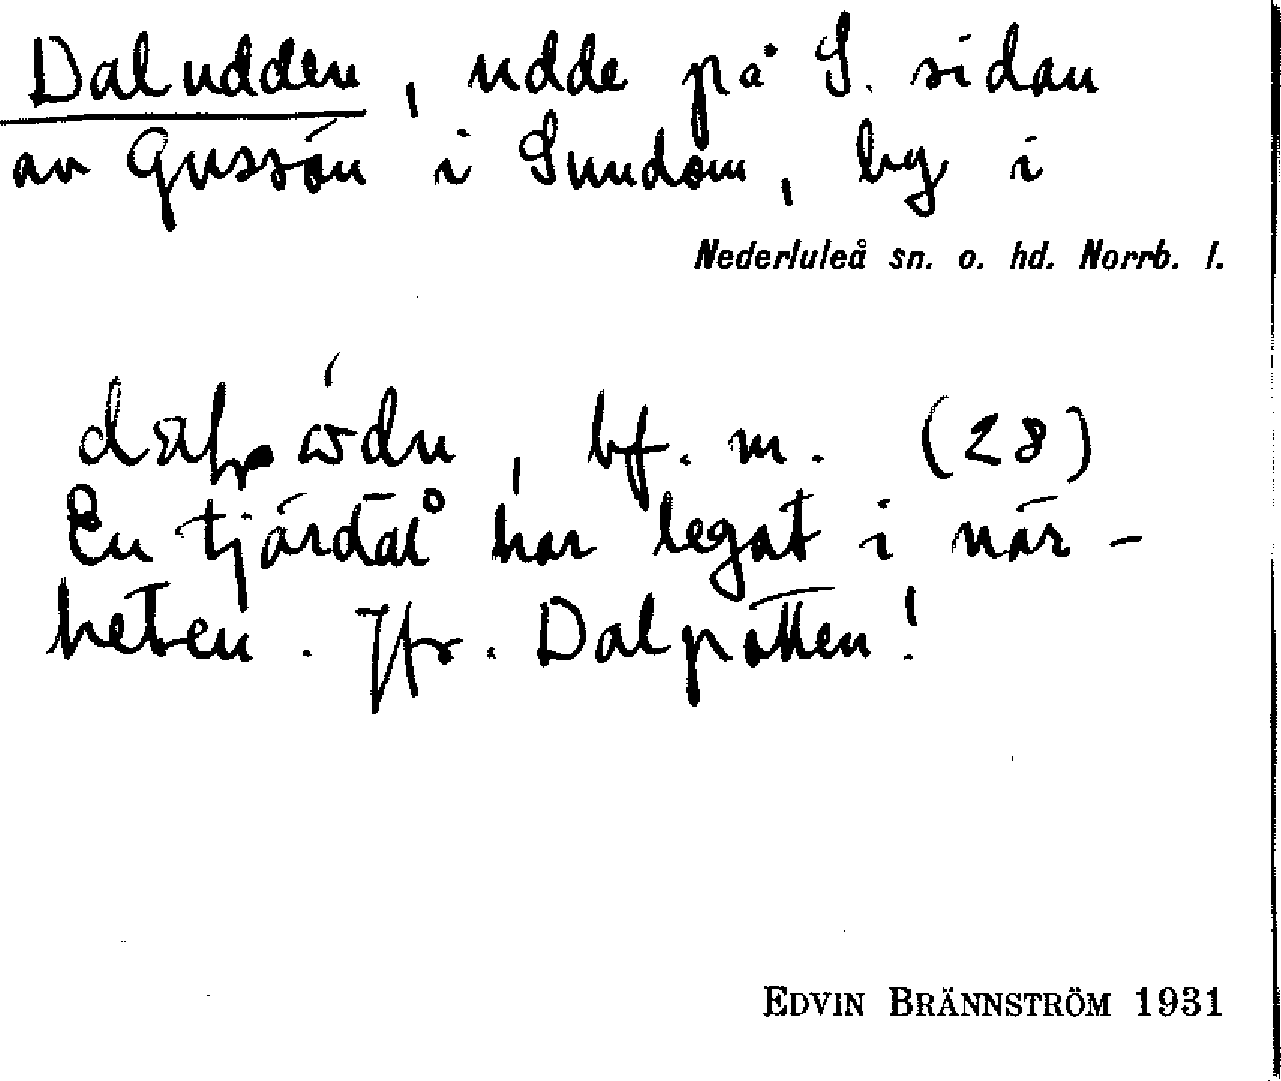 Daludden, udde på S. sidan
av Gussön i Sundom, by i
Nederluleå sn. o. hd. Norrb. l.
bf. m. (28)
En tjärdal har legat i när-
heten. Jfr. Dalpotten!
EDVIN BRÄNNSTRÖM 1931